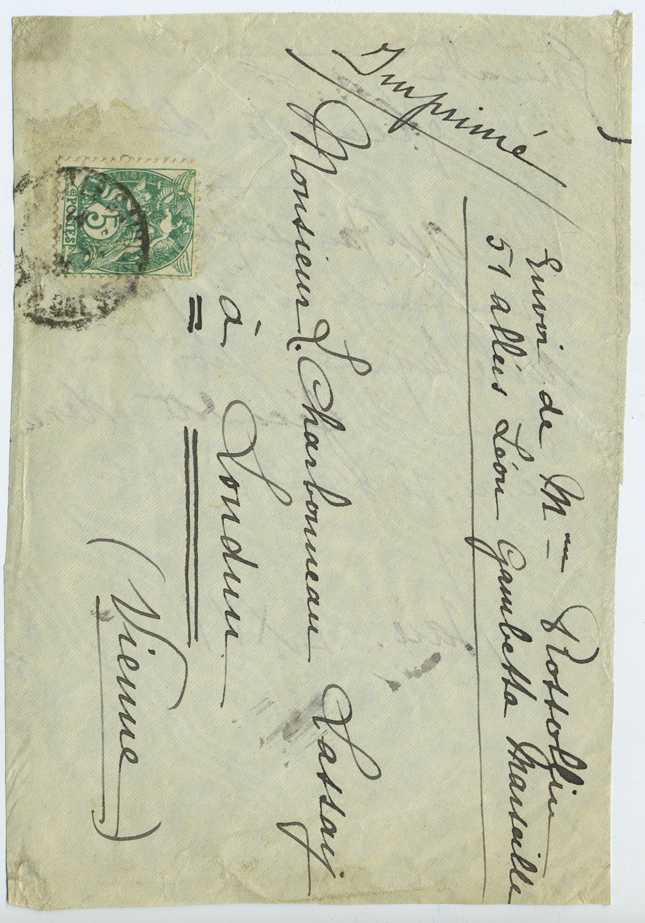 Imprimé
Envoi de Mme Rossollin
51 allées Léon Gambetta Marseille
Monsieur L. Charbonneau Lassay
à Loudun
(Vienne)
5c
POSTES